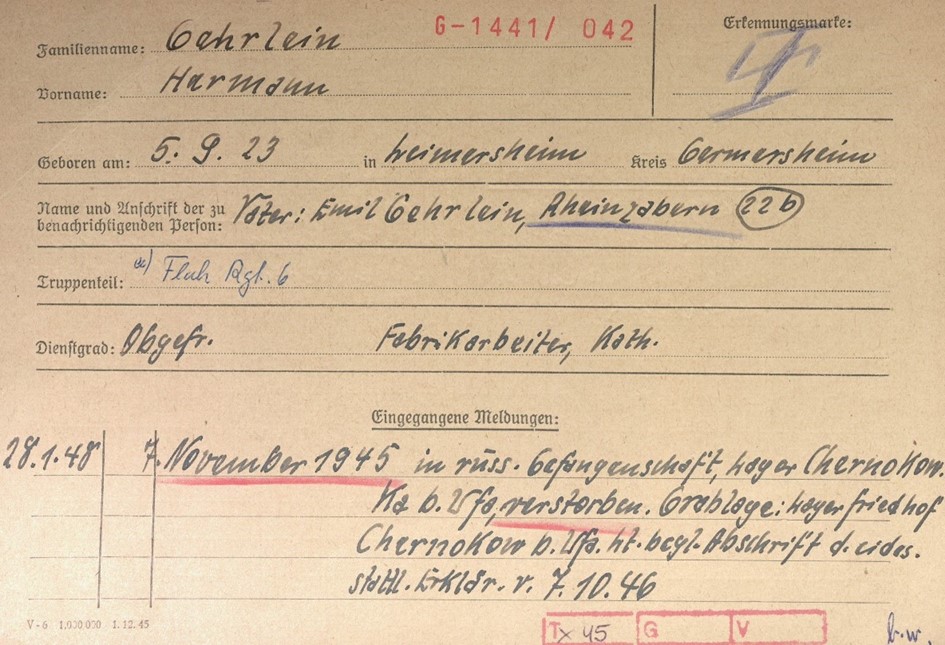 G-1441/ 042
Erkennungsmarke:
Familienname: Gehrlein
Vorname: Harmann
Geboren am: 5. 9. 23 in Leimersheim Kreis Germersheim
Name und Anschrift der zu benachrichtigenden Person: Vater: Emil Gehrlein, Rheinzabern 22b
Truppenteil: Flak Rgt. 6
Dienstgrad: Obgefr. Fabrikarbeiter, Kath.
Eingegangene Meldungen:
28.1.48 7. November 1945 in russ. Gefangenschaft, Lager Chernokow.
Ka b. Ufa, verstorben. Grablage: Lagerfriedhof
Chernokow b. Ufa. lt. begl. Abschrift d. eides.
stattl. Erklär. v. 7.10.46
V-6 1.000.000 1.12.45
T x 45 G V
b.w.